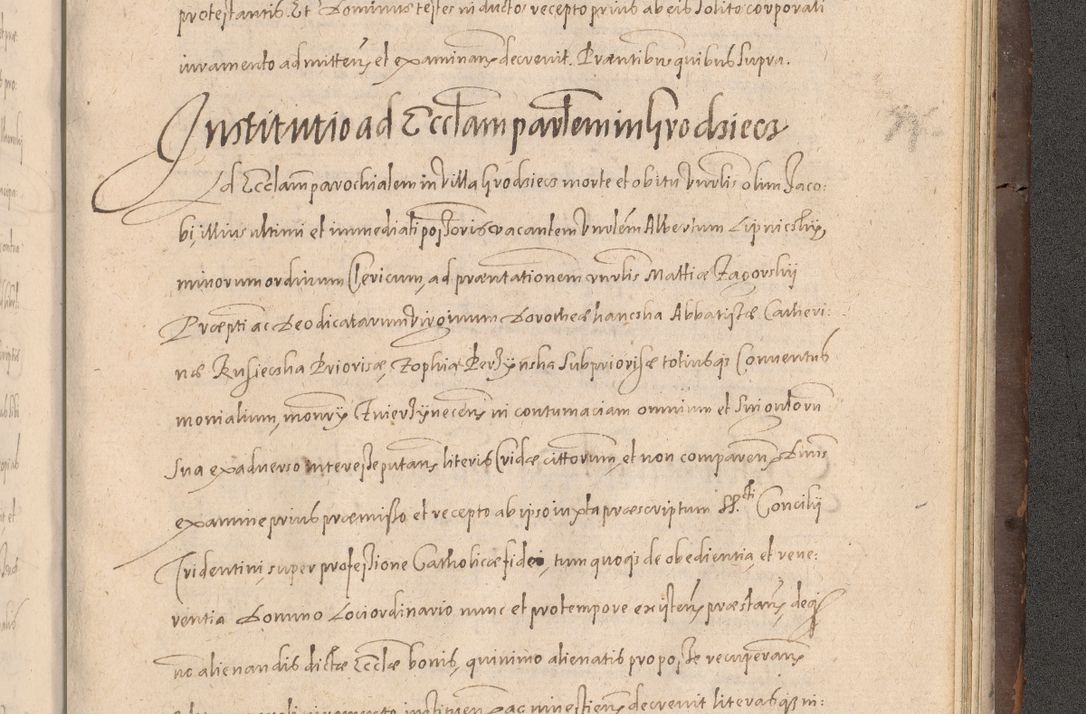 protestantis. Et Dominus testes inductos recepto prius ab eis solito corporali
iuramento admitten et examinan decrevit. Præntibus quibus supra.
Institutio ad Ecclam parlem in Grodziecz
Ad Ecclam parochialem in Villa Grodziecz morte et obitu Vnrlis olim Jaco:
bi, illius ultimi et immediati possoris vacantem Vnrlem Albertum Lipnicskÿ,
minorum ordinum Clericum, ad præntationem vnrlis Mattiæ Zagorskij
Præpti ac Deo dicatarum Virginum Dorotheæ hancska Abbatissæ Catheri:
næ Rusiecska Priorisæ, Zophiæ Perzÿnska Subpriorissæ totiusqз Conventus
monialium, monrÿ Zvierzÿnecen in contumaciam omnium et Sui
sua ex adverso interesse putan literis Cridæ cittorum, et non comparen
examine prius præmisso et recepto ab ipso iuxta præscriptum SS.cti Concilij
Tridentini, super professione Catholicæ fidei, tum quoqз de obedientia, et reve:
rentia Domino Loci ordinario nunc et pro tempore existen præstan deqз
no alienandis dictæ Ecclæ bonis, quinimo alienatis pro posse recuperan
iuramento instituen ac investien decrevit literasqз in: